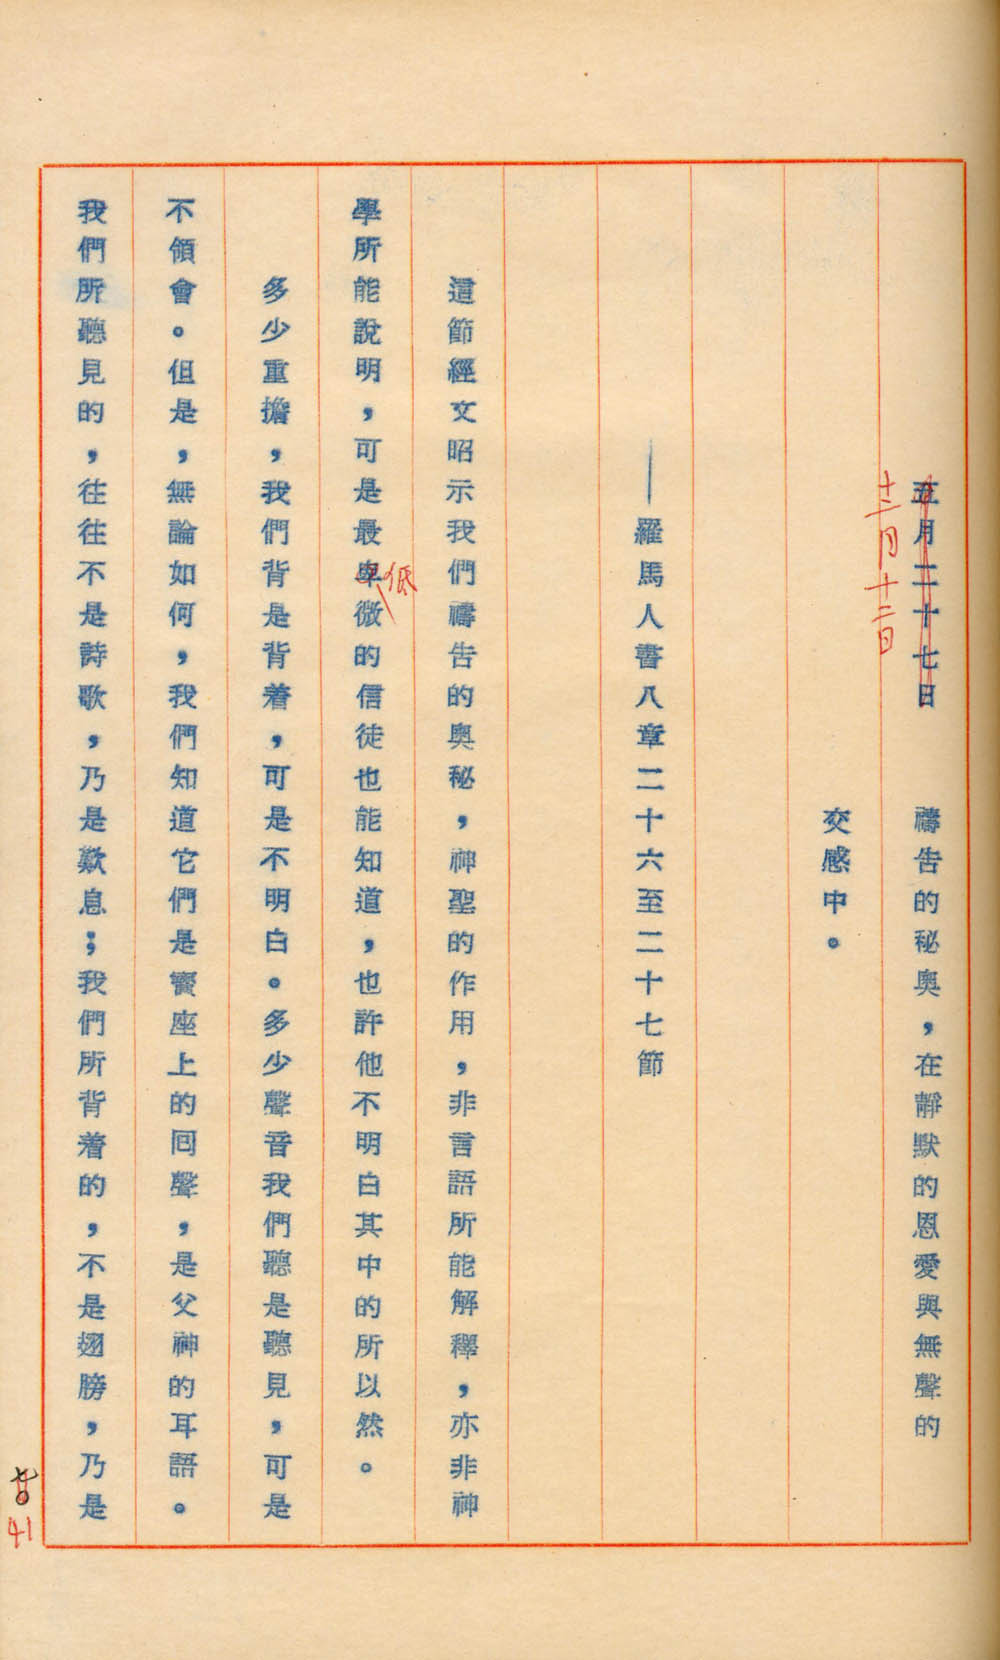 五月二十七日　禱告的秘奧，在靜默的恩愛與無聲的
十二月十二日
交感中。
——羅馬人書八章二十六至二十七節
這節經文昭示我們禱告的奧秘，神聖的作用，非言語所能解釋，亦非神
低
學所能說明，可是最卑微的信徒也能知道，也許他不明白其中的所以然。
多少重擔，我們背是背着，可是不明白。多少聲音我們聽是聽見，可是
不領會。但是，無論如何，我們知道它們是寶座上的回聲，是父神的耳語。
我們所聽見的，往往不是詩歌，乃是歎息；我們所背着的，不是翅膀，乃是
41